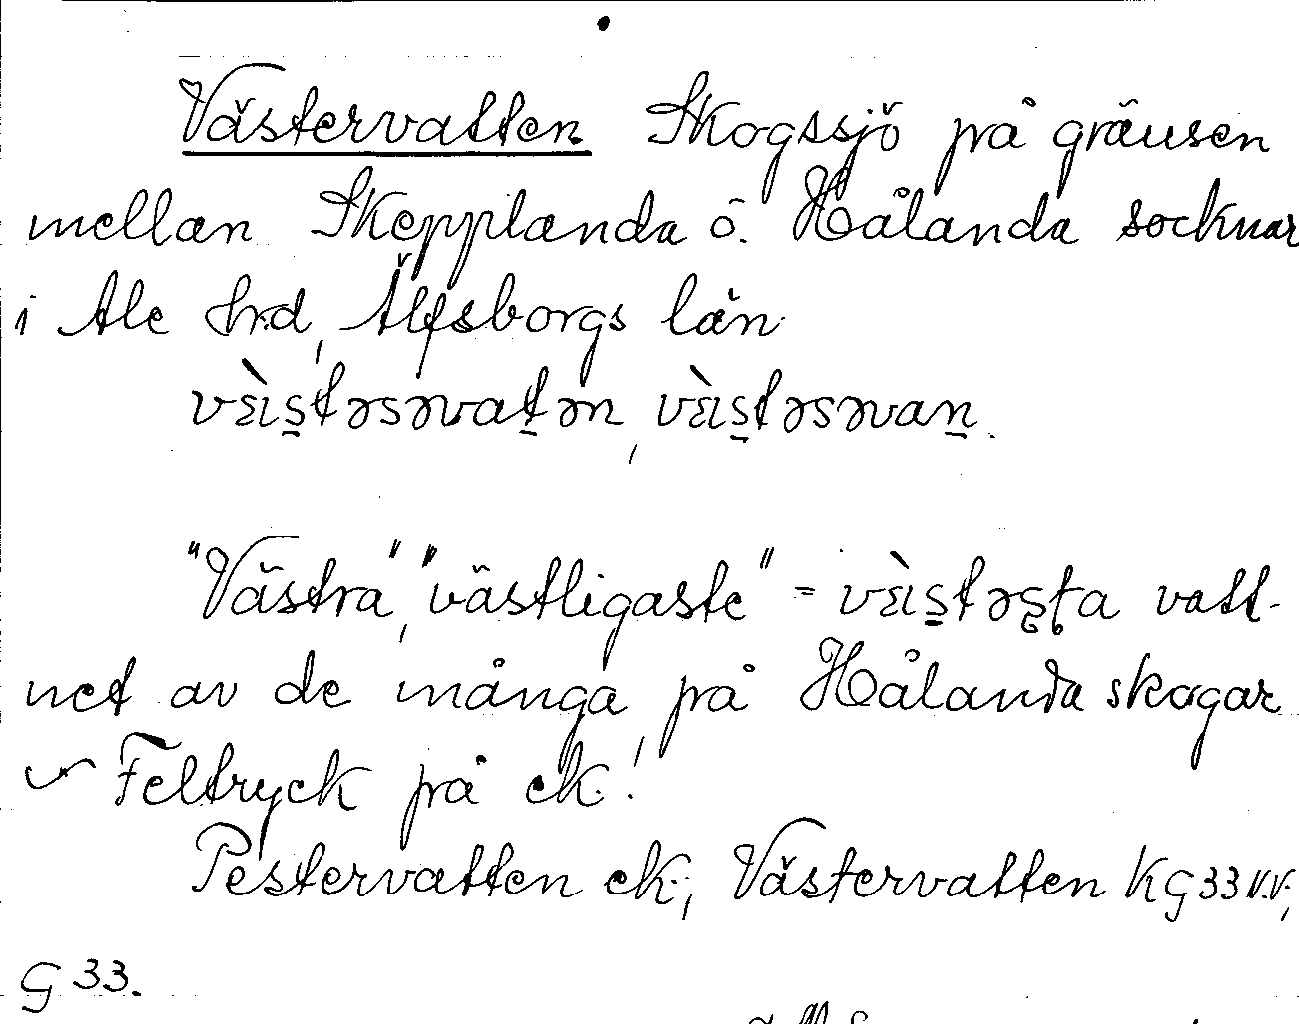 Västervatten Skogssjö på gränsen
mellan Skepplanda o. Hålanda socknar
i Ale hrd, Älfsborgs län.
vὲis̠təsəvat̠ən, vὲis̠təsəvan̠.
"Västra", "västligaste" = vὲis̠təʂʈa vatt-
net av de många på Hålanda skogar
Feltryck på ek.!
Pestervatten ek.; Västervatten KG33 V.V.;
G 33.